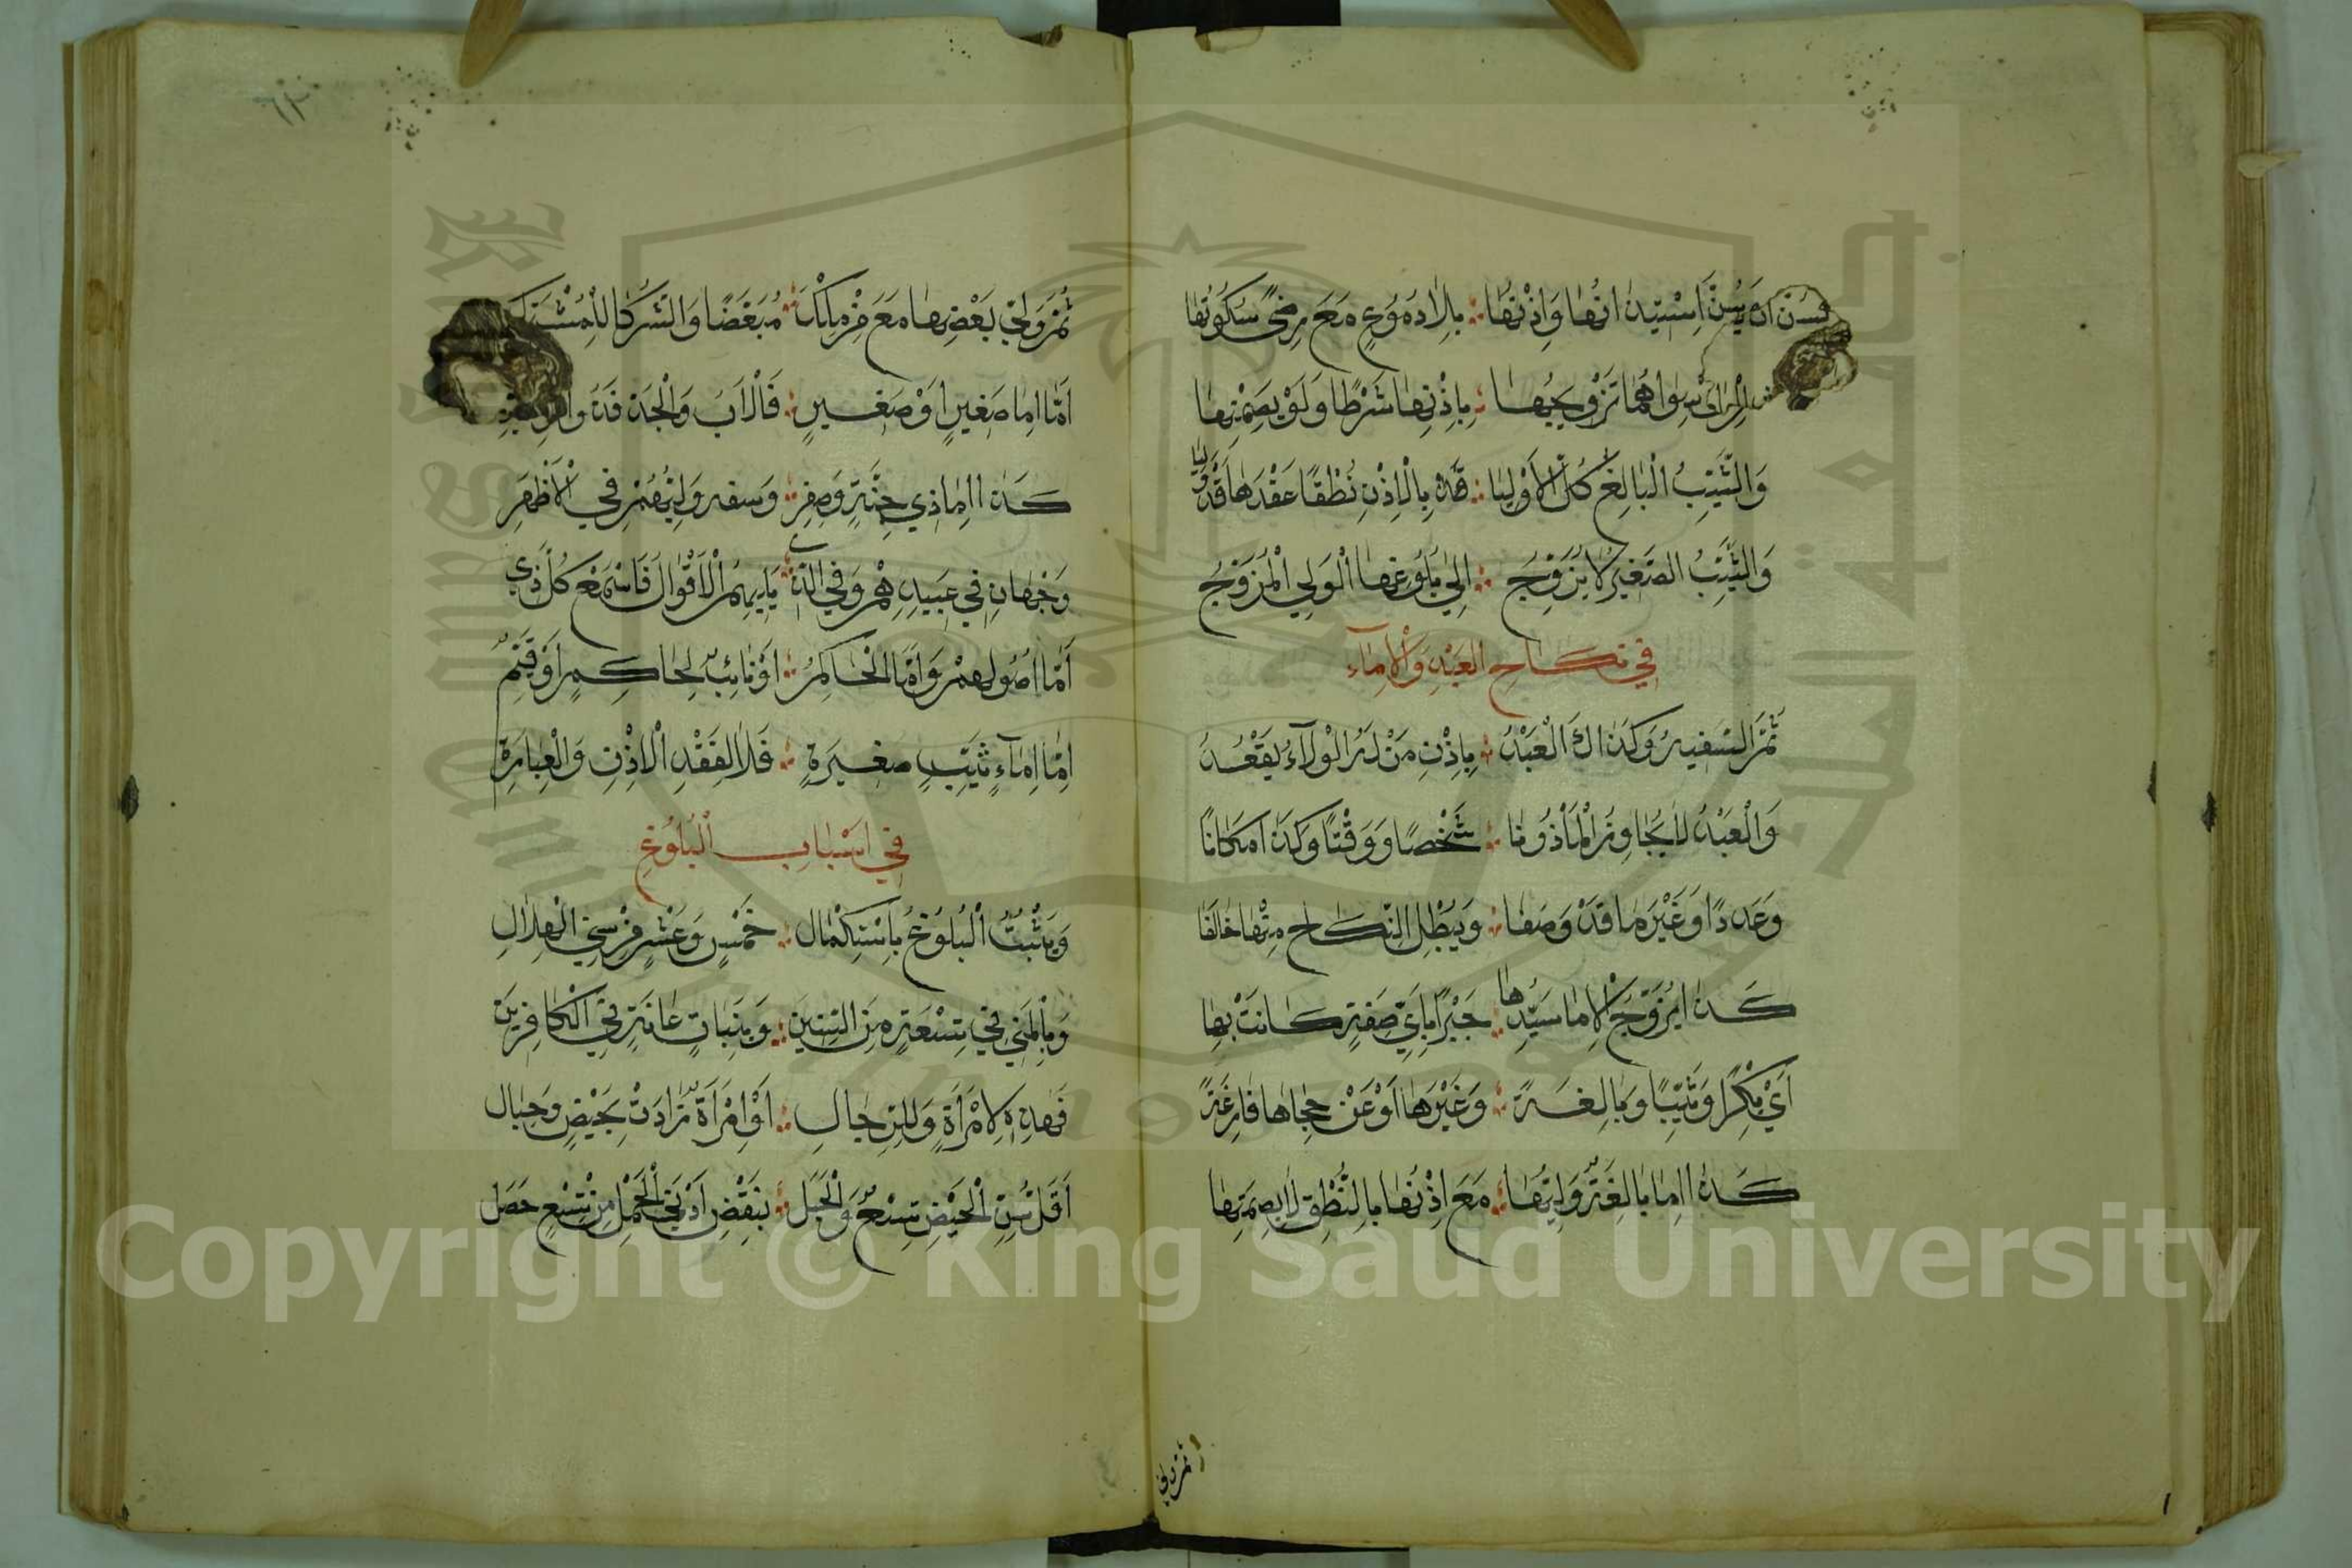 يُسَنُّ اسْتِيذَانُهَا وَإِذْنُهَا ؞ بِلَا دُمُوعٍ مَعَ رِضًى سُكُوتُهَا
سِوَاهُمَا تَزْوِيجُهَا ؞ بِإِذْنِهَا شَرْطًا وَلَوْ بِصَمْتِهَا
وَالثَّيِّبُ الْبَالِغُ كُلُّ الْأَوْلِيَا ؞ بِالْإِذْنِ نُطْقًا عَقْدَهَا قَدْ وُلِيَا
وَالثَّيِّبُ الصَّغِيرُ لَا يُزَوِّجُ ؞ إِلَى بُلُوغِهَا الْوَلِي الْمُزَوِّجُ
فِي نِكَاحِ الْعَبْدِ وَالْإِمَآءِ
ثُمَّ السَّفِيهُ وَكَذَاكَ الْعَبْدُ ؞ بِإِذْنِ مَنْ لَهُ الْوَلَآءُ يَعْقُدُ
وَالْعَبْدُ لَا يُجَاوِزُ الْمَأْذُونَا ؞ شَخْصًا وَوَقْتًا وَكَذَا مَكَانًا
وَعَدَدًا وَغَيْرَ مَا قَدْ وَصَفَا ؞ وَيُبْطِلُ النِّكَاحَ مِنْهَا خَالَفَا
كَذَا يُزَوِّجُ الْإِمَا سَيِّدُهَا ؞ جَبْرًا بِأَيِّ صِفَةٍ كَانَتْ بِهَا
أَيْ بِكْرًا وَثَيِّبًا وَبَالِغَةً ؞ وَغَيْرَهَا أَوْ عَنْ حِجَاهَا فَارِغَةً
كَذَا الِمَا بَالِغَةٍ وَلِيُّهَا ؞ مَعَ إِذْنِهَا بِالنُّطْقِ لَا بِصَمْتِهَا
ثم ولي
ثُمَّ وَلِيُّ بَعْضِهَا مَعَ مَنْ مَلَكَ ؞ مُبَعَّضًا وَالشُّرَكَا لِلْمُشْتَرَكْ
أَمَّا إِمَا صَغِيرٍ أَوْ صَغِيرٍ ؞ فَالْأَبُ وَالْجَدُّ
كَذَا إِمَا ذِي جِنَّةٍ وَصِغَرِ ؞ وَسَفَهٍ وَلِيُّهُمْ فِي الْأَظْهَرِ
وَجْهَانِ فِي عَبِيدِهِمْ وَفِي الَّذِي ؞ الْأَقْوَالَ فَاسْتَمِعْ كُلَّ ذِي
أَمَّا أُصُولُهُمْ وَأَمَّا الْحَاكِمُ ؞ أَوْ نَائِبٌ لِحَاكِمٍ أَوْ قَيِّمُ
إِمَّا إِمَآءِ ثَيِّبٍ صَغِيرَةٍ ؞ فَلَا لِفَقْدِ الْإِذْنِ وَالْعِبَارَةِ
فِي أَسْبَابِ الْبُلُوغِ
وَيَثْبُتُ الْبُلُوغُ بِاسْتِكْمَالِ ؞ خَمْسٍ وَعَشْرٍ مِنْ سِنِي الْهِلَالِ
وَبِالْمَنِي فِي تِسْعَةٍ مِنَ السِّنِينَ ؞ وَبِنَبَاتِ عَانَةٍ فِي الْكَافِرِينَ
فَهَذِهِ لِامْرَأَةٍ وَلِلرِّجَالِ ؞ أَوِ امْرَأَةٌ زَادَتْ بِحَيْضٍ وَحِبَالِ
أَقَلُّ سِنِّ الْحَيْضِ تِسْعٌ وَالْحَبَلْ ؞ بِنَقْضِ أَدْنَى الْحَمْلِ مِنْ تِسْعٍ حَصَلْ
Copyright © King Saud University